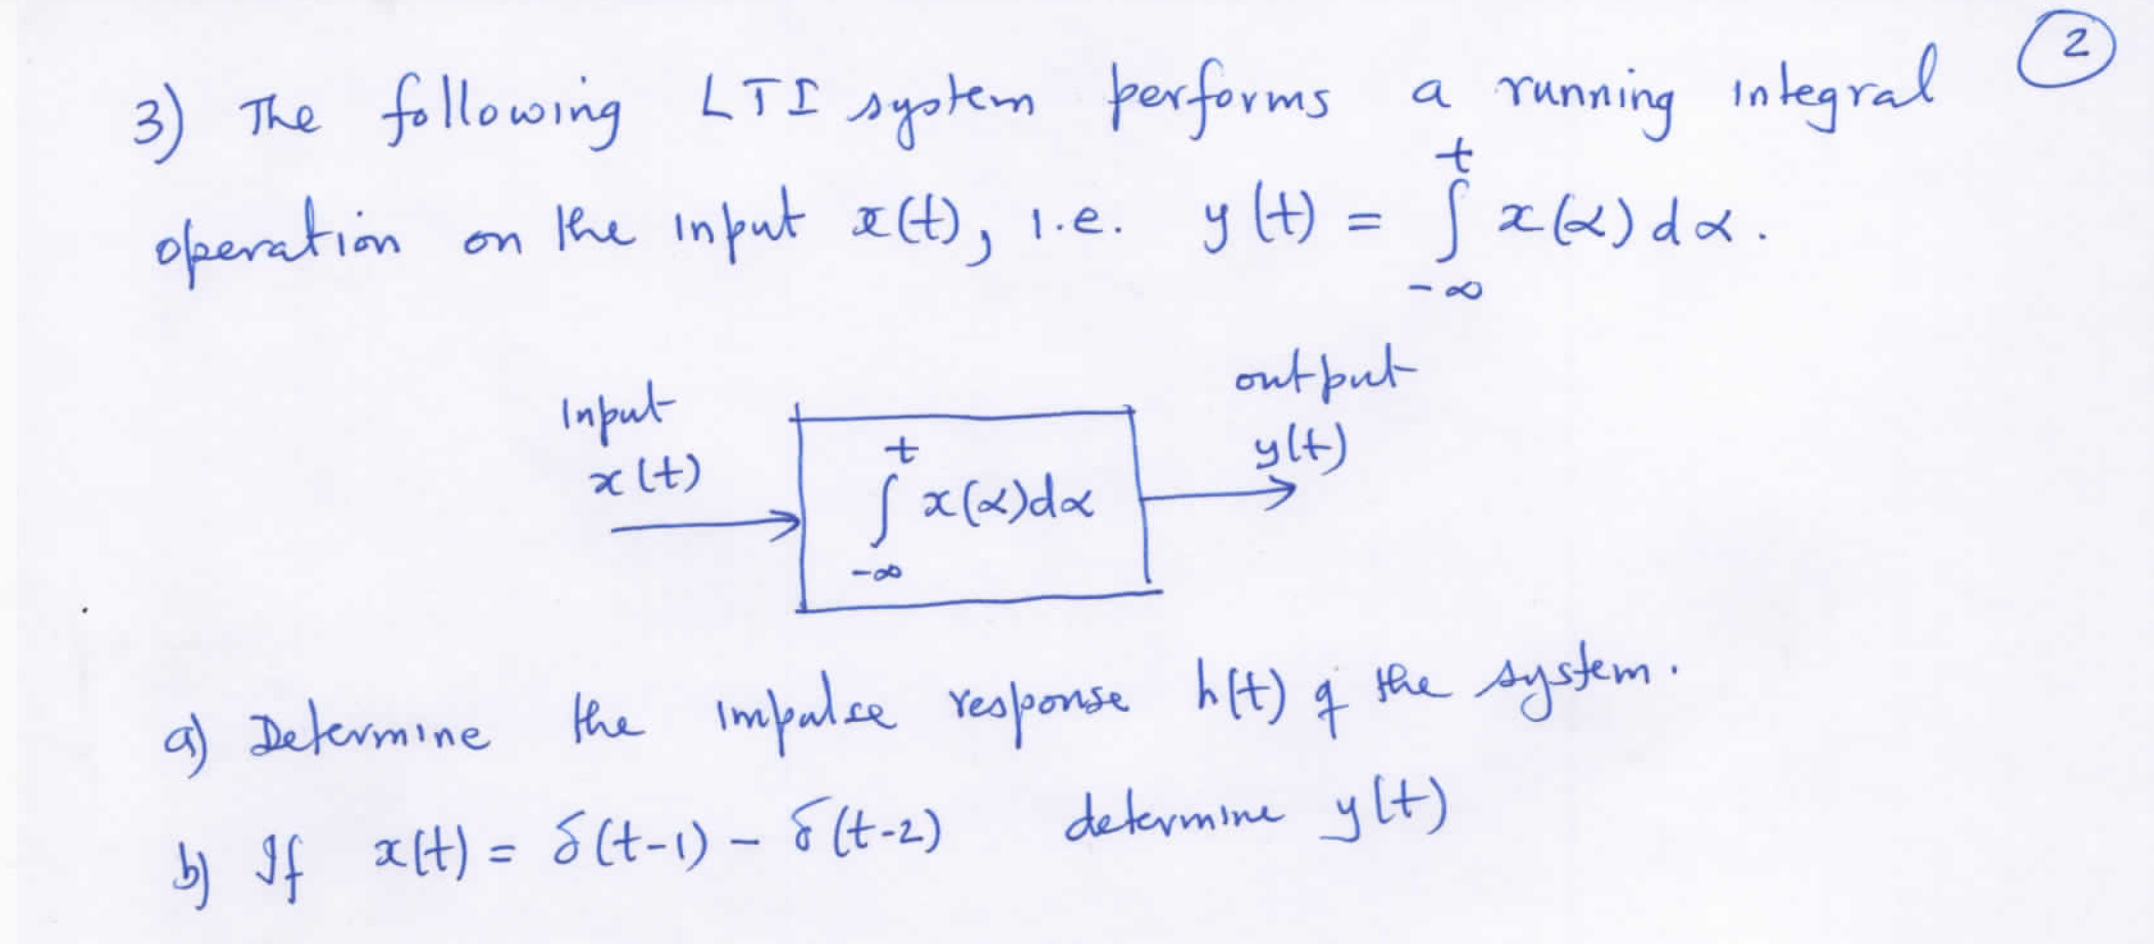 2
3) The following LTI system performs a running integral
operation on the input x(t), i.e. y(t) = ∫_{-∞}^{t} x(α)dα.
Input
x(t)
∫_{-∞}^{t} x(α)dα
output
y(t)
a) Determine the impulse response h(t) of the system.
b) If x(t) = δ(t-1) - δ(t-2) determine y(t)